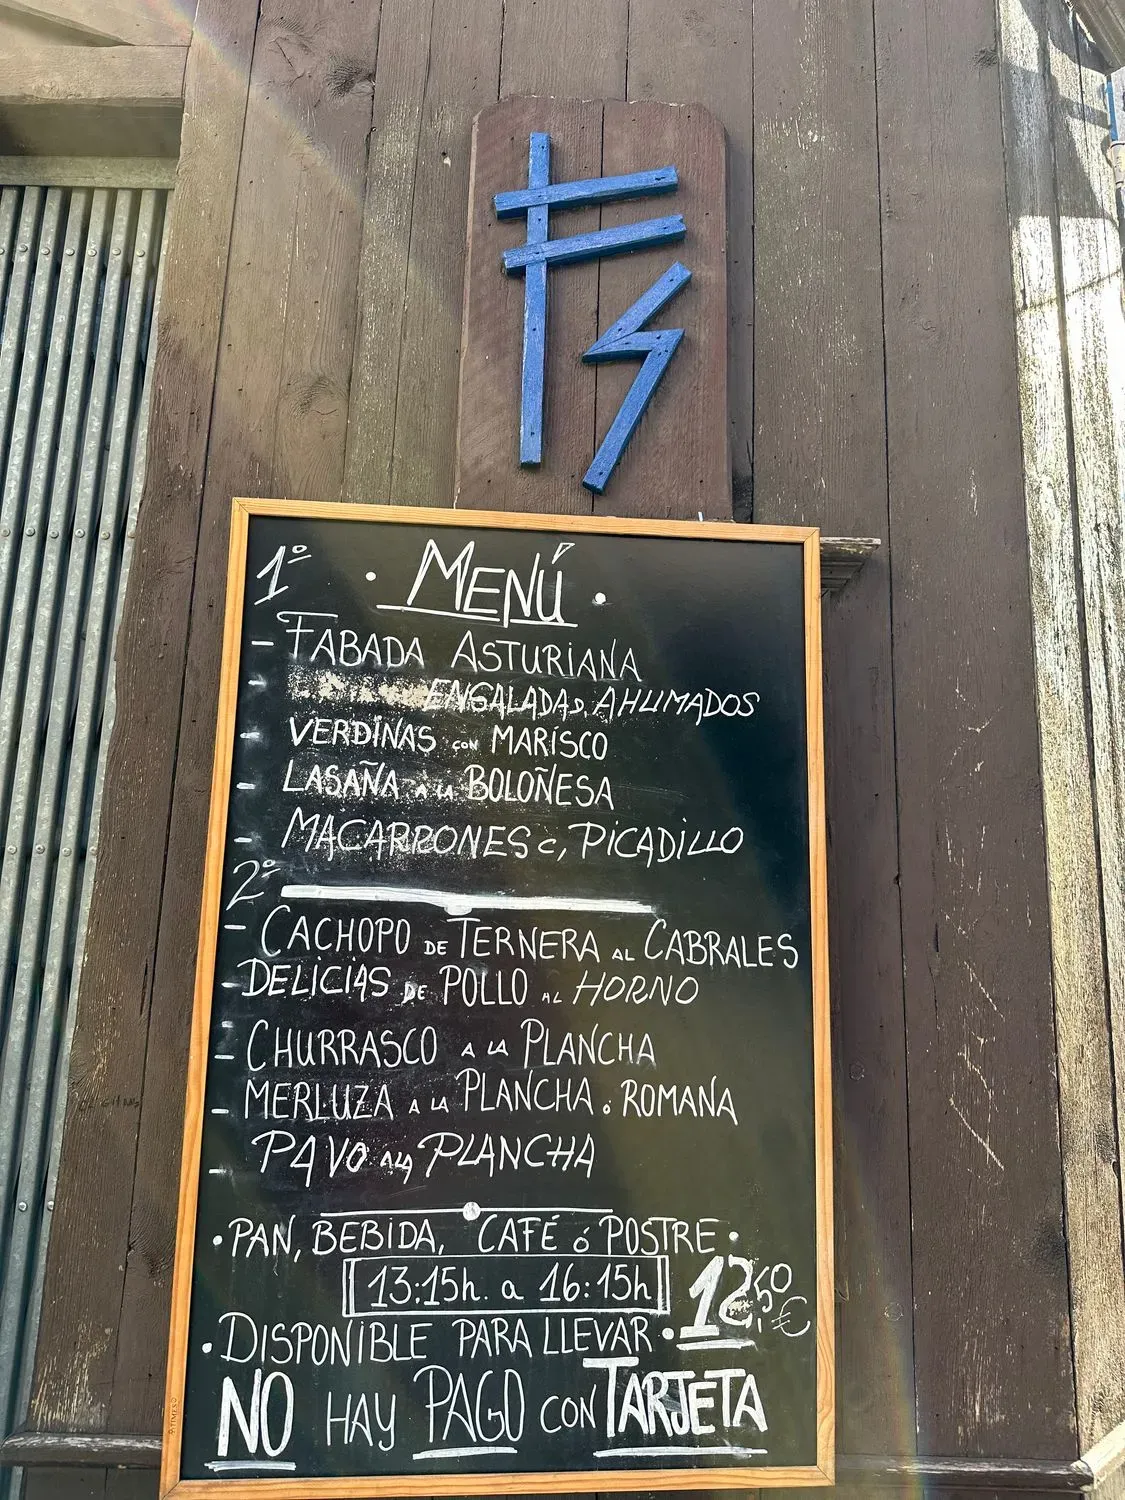 FS
1º · MENÚ ·
- FABADA ASTURIANA
- ENSALADA D. AHUMADOS
- VERDINAS CON MARISCO
- LASAÑA A LA BOLOÑESA
- MACARRONES C, PICADILLO
2º
- CACHOPO DE TERNERA AL CABRALES
- DELICIAS DE POLLO AL HORNO
- CHURRASCO A LA PLANCHA
- MERLUZA A LA PLANCHA ó ROMANA
- PAVO A LA PLANCHA
· PAN, BEBIDA, CAFÉ ó POSTRE ·
13:15h. a 16:15h
12,50€
· DISPONIBLE PARA LLEVAR ·
NO HAY PAGO CON TARJETA